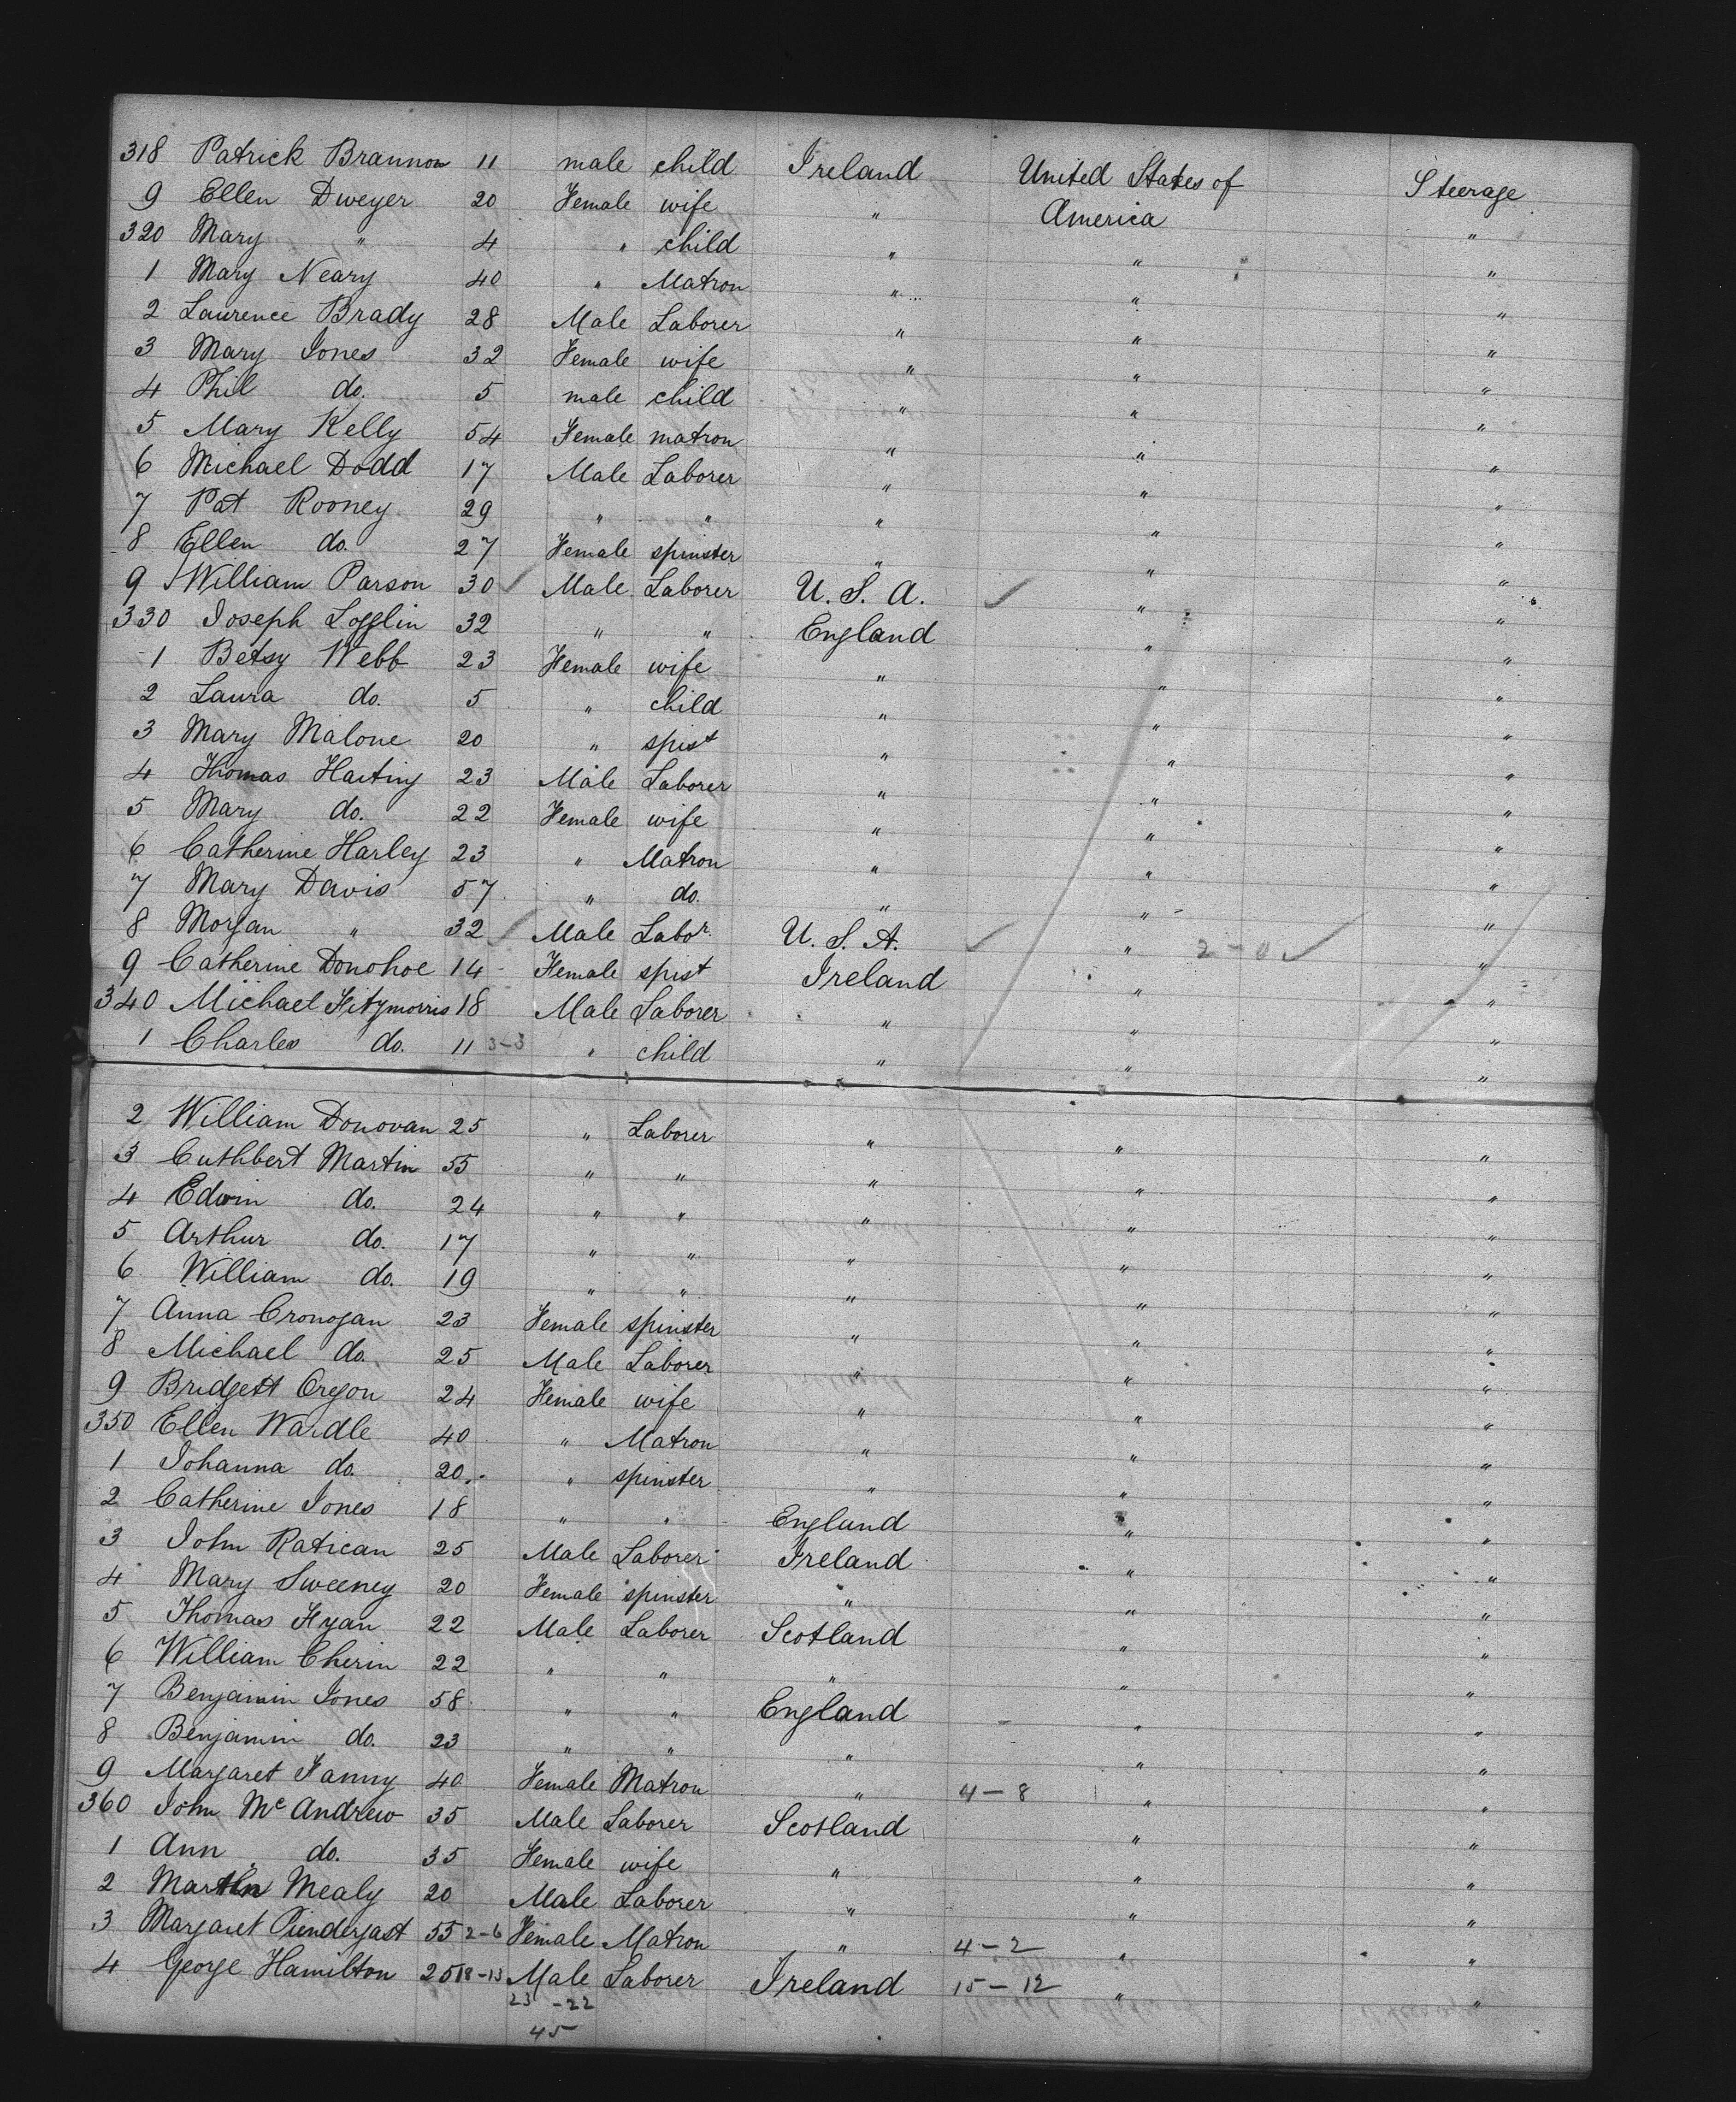 318 Patrick Brannon 11 male child Ireland United States of Steerage
9 Ellen Dweyer 20 Female wife " America "
320 Mary " 4 " child " " "
1 Mary Neary 40 " Matron " " "
2 Laurence Brady 28 Male Laborer " " "
3 Mary Jones 32 Female wife " " "
4 Phil do. 5 male child " " "
5 Mary Kelly 54 Female matron " " "
6 Michael Dodd 17 Male Laborer " " "
7 Pat Rooney 29 " " " " "
8 Ellen do. 27 Female spinster " " "
9 William Parson 30 ✓ Male Laborer U. S. A. ✓ " "
330 Joseph Logglin 32 " " England " "
1 Betsy Webb 23 Female wife " " "
2 Laura do. 5 " child " " "
3 Mary Malone 20 " spist " " "
4 Thomas Harting 23 Male Laborer " " "
5 Mary do. 22 Female wife " " "
6 Catherine Harley 23 " Matron " " "
7 Mary Davis 57 " do. " " "
8 Morgan " 32 ✓ Male Labor. U. S. A. ✓ " 2-0 ✓ "
9 Catherine Donohoe 14 Female spist Ireland " "
340 Michael Fitzmorris 18 Male Laborer " " "
1 Charles do. 11 3-3 " child " " "
2 William Donovan 25 " Laborer " " "
3 Cuthbert Martin 55 " " " " "
4 Edwin do. 24 " " " " "
5 Arthur do. 17 " " " " "
6 William do. 19 " " " " "
7 Anna Cronogan 23 Female spinster " " "
8 Michael do. 25 Male Laborer " " "
9 Bridgett Oregon 24 Female wife " " "
350 Ellen Wardle 40 " Matron " " "
1 Johanna do. 20 " spinster " " "
2 Catherine Jones 18 " " England " "
3 John Ratican 25 Male Laborer Ireland " "
4 Mary Sweeney 20 Female spinster " " "
5 Thomas Hyan 22 Male Laborer Scotland " "
6 William Cherin 22 " " " " "
7 Benjamin Jones 58 " " England " "
8 Benjamin do. 23 " " " " "
9 Margaret Fanny 40 Female Matron " 4-8 " "
360 John McAndrew 35 Male Laborer Scotland " "
1 Ann do. 35 Female wife " " "
2 Martin Mealy 20 Male Laborer " " "
3 Margaret Piendergast 55 2-6 Female Matron " 4-2 " "
4 George Hamilton 25 18-13 Male Laborer Ireland 15-12 " "
23-22
45